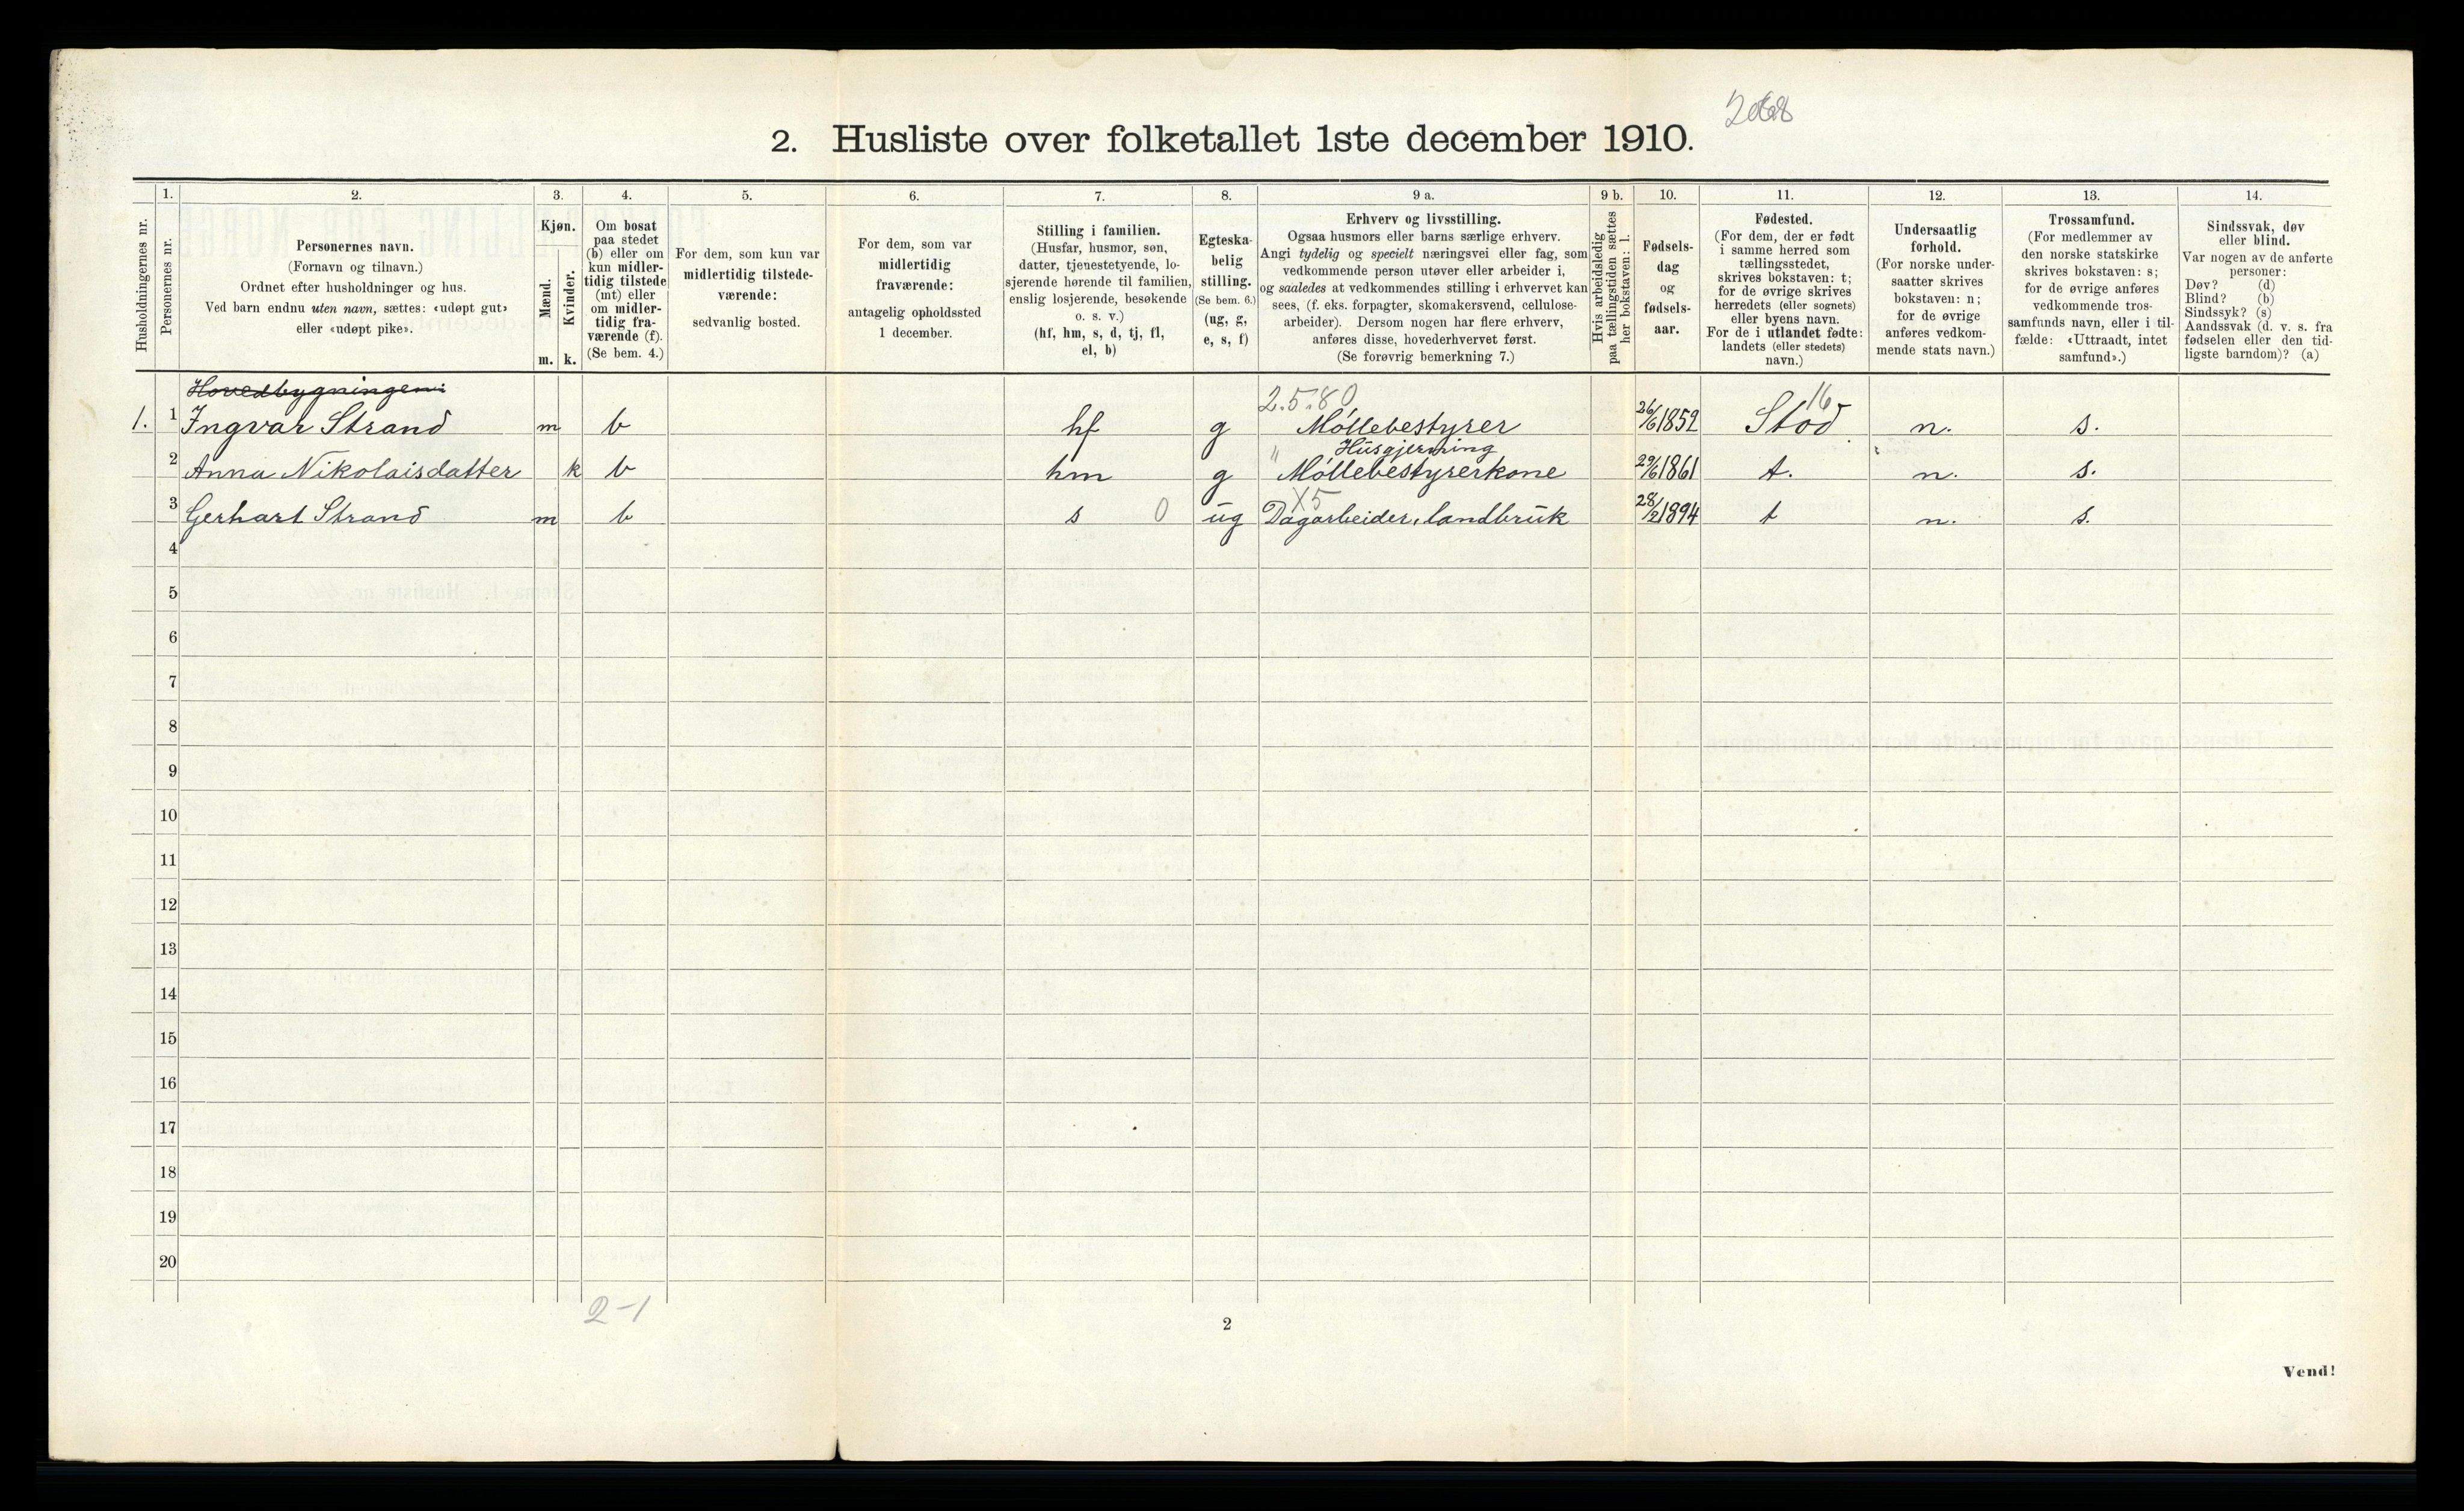 2. Husliste over folketallet 1ste december 1910.
1. 2. 3. 4. 5. 6. 7. 8. 9 a. 9 b. 10. 11. 12. 13. 14.
Husholdningernes nr.
Personernes nr.
Personernes navn.
(Fornavn og tilnavn.)
Ordnet efter husholdninger og hus.
Ved barn endnu uten navn, sættes: «udøpt gut»
eller «udøpt pike».
Kjøn.
Mænd.
Kvinder.
m. k.
Om bosat
paa stedet
(b) eller om
kun midler-
tidig tilstede
(mt) eller
om midler-
tidig fra-
værende (f).
(Se bem. 4.)
For dem, som kun var
midlertidig tilstede-
værende:
sedvanlig bosted.
For dem, som var
midlertidig
fraværende:
antagelig opholdssted
1 december.
Stilling i familien.
(Husfar, husmor, søn,
datter, tjenestetyende, lo-
sjerende hørende til familien,
enslig losjerende, besøkende
o. s. v.)
(hf, hm, s, d, tj, fl,
el, b)
Egteska-
belig
stilling.
(Se bem. 6.)
(ug, g,
e, s, f)
Erhverv og livsstilling.
Ogsaa husmors eller barns særlige erhverv.
Angi tydelig og specielt næringsvei eller fag, som
vedkommende person utøver eller arbeider i,
og saaledes at vedkommendes stilling i erhvervet kan
sees, (f. eks. forpagter, skomakersvend, cellulose-
arbeider). Dersom nogen har flere erhverv,
anføres disse, hovederhvervet først.
(Se forøvrig bemerkning 7.)
Hvis arbeidsledig
paa tællingstiden sættes
her bokstaven: l.
Fødsels-
dag
og
fødsels-
aar.
Fødested.
(For dem, der er født
i samme herred som
tællingsstedet,
skrives bokstaven: t;
for de øvrige skrives
herredets (eller sognets)
eller byens navn.
For de i utlandet fødte:
landets (eller stedets)
navn.)
Undersaatlig
forhold.
(For norske under-
saatter skrives
bokstaven: n;
for de øvrige
anføres vedkom-
mende stats navn.)
Trossamfund.
(For medlemmer av
den norske statskirke
skrives bokstaven: s;
for de øvrige anføres
vedkommende tros-
samfunds navn, eller i til-
fælde: «Uttraadt, intet
samfund».)
Sindssvak, døv
eller blind.
Var nogen av de anførte
personer:
Døv? (d)
Blind? (b)
Sindssyk? (s)
Aandssvak (d. v. s. fra
fødselen eller den tid-
ligste barndom)? (a)
Hovedbygningen:
2.5.80 16
1. 1 Ingvar Strand m b hf g Møllebestyrer 26/6 1852 Stod n. s.
" Husgjerning
2 Anna Nikolaisdatter k b hm g Møllebestyrerkone 29/6 1861 t. n. s.
X5
3 Gerhart Strand m b s 0 ug Dagarbeider, landbruk 28/2 1894 t n. s.
4
5
6
7
8
9
10
11
12
13
14
15
16
17
18
19
20
2-1
2
Vend!